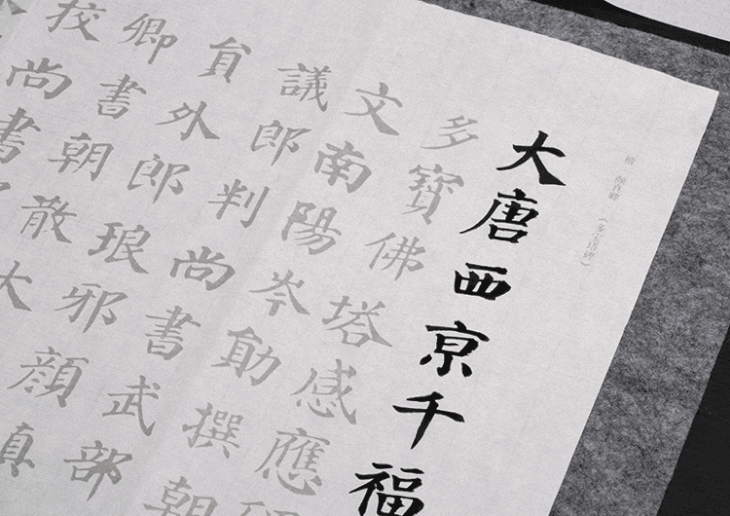 《多宝塔碑》
大唐西亰千福
多寶佛塔感應
文南陽岑勛撰朝
議郎判尚書武部
員外郎琅邪顏真
卿書朝散大
校尚書